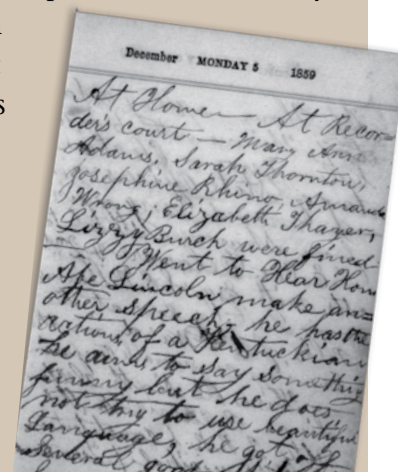 December MONDAY 5 1859
At Home - At Recor-
ders court - Mary Ann
Adams, Sarah Thornton,
Josephine Rhino, Amanda
Wrong, Elizabeth Thayer,
Lizzy Burch were fined
Went to Hear Hon
Abe Lincoln make an=
other speech he has the
actions of a Kentuckian
he aims to say something
funny but he does
not try to use beautiful
Language, he got off
Several good